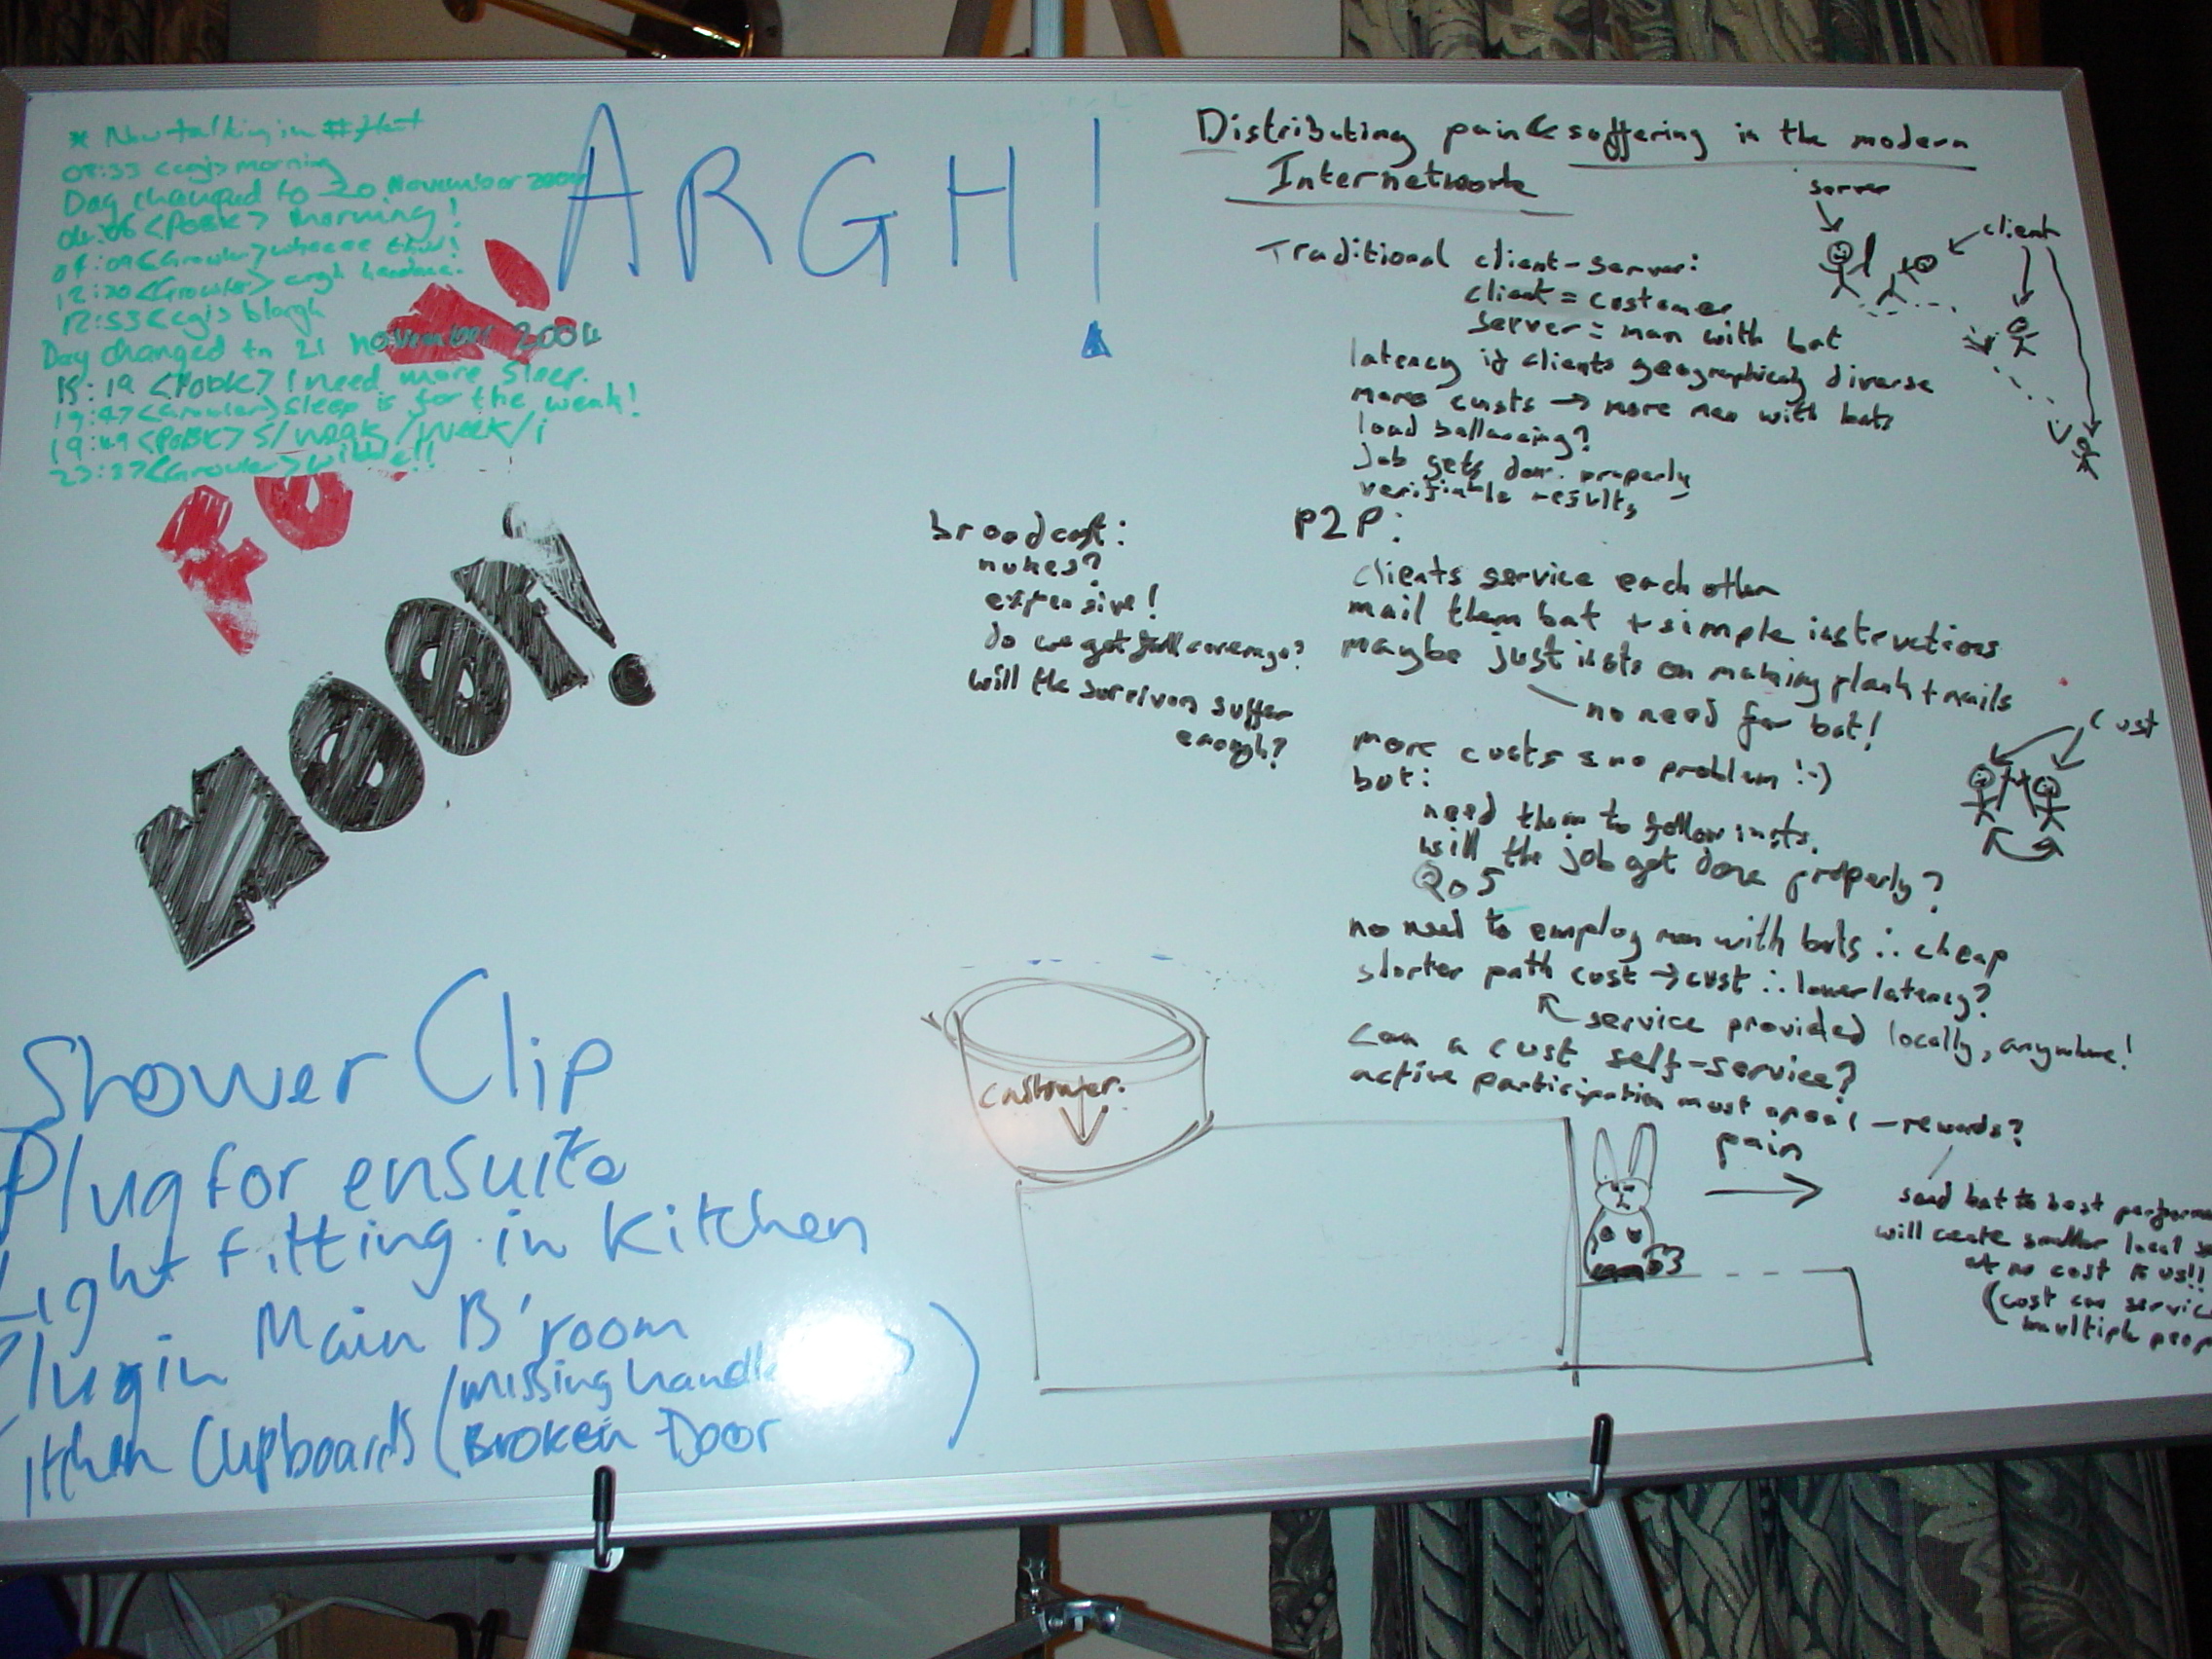 * Now talking in #flat
08:33 <cgj> morning
Day changed to 20 November 2004
04:06 <PoBK> morning!
12:20 <Growler> argh
12:53 <cgj> blargh
Day changed to 21 November 2004
15:19 <PobK> I need more sleep.
19:47 <Growler> Sleep is for the weak!
19:49 <PoBK> s/weak/week/i
23:37 <Growler> wibble!!
ARGH!
MOOF!
Shower Clip
Plug for ensuite
Light fitting in Kitchen
Plug in Main B'room
itchen Cupboards (missing handle
Broken Door)
Distributing pain & suffering in the modern
Internetwork
server
client
Traditional client-server:
client = customer
server = man with bat
latency if clients geographically diverse
more custs → more men with bats
load ballancing?
job gets done properly
verifiable results
broadcast:
nukes?
expensive!
do we get full coverage?
will the survivors suffer
enough?
P2P:
clients service each other
mail them bat + simple instructions
maybe just insts on making plank + nails
no need for bat!
more custs = no problem!:-)
but:
need them to follow insts.
will the job get done properly?
QoS
cust
no need to employ men with bats ∴ cheap
shorter path cust → cust ∴ lower latency?
service provided locally, anywhere!
can a cust self-service?
active participation must appeal - rewards?
send bat to best
will create smaller local
at no cost to us!!
(cust can
multiple
customer.
pain